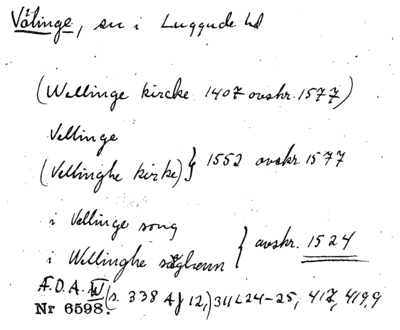 Välinge, sn i Luggude hd
(Wellinge kircke 1407 avskr. 1577)
Vellinge
(Vellinghe kirke) } 1552 avskr. 1577
i Vellinge song
i Wellinghe } avskr. 1524
Æ.D.A. IV (s. 338 Af 12,) 311 L24-25, 417, 419,9
Nr 6598.